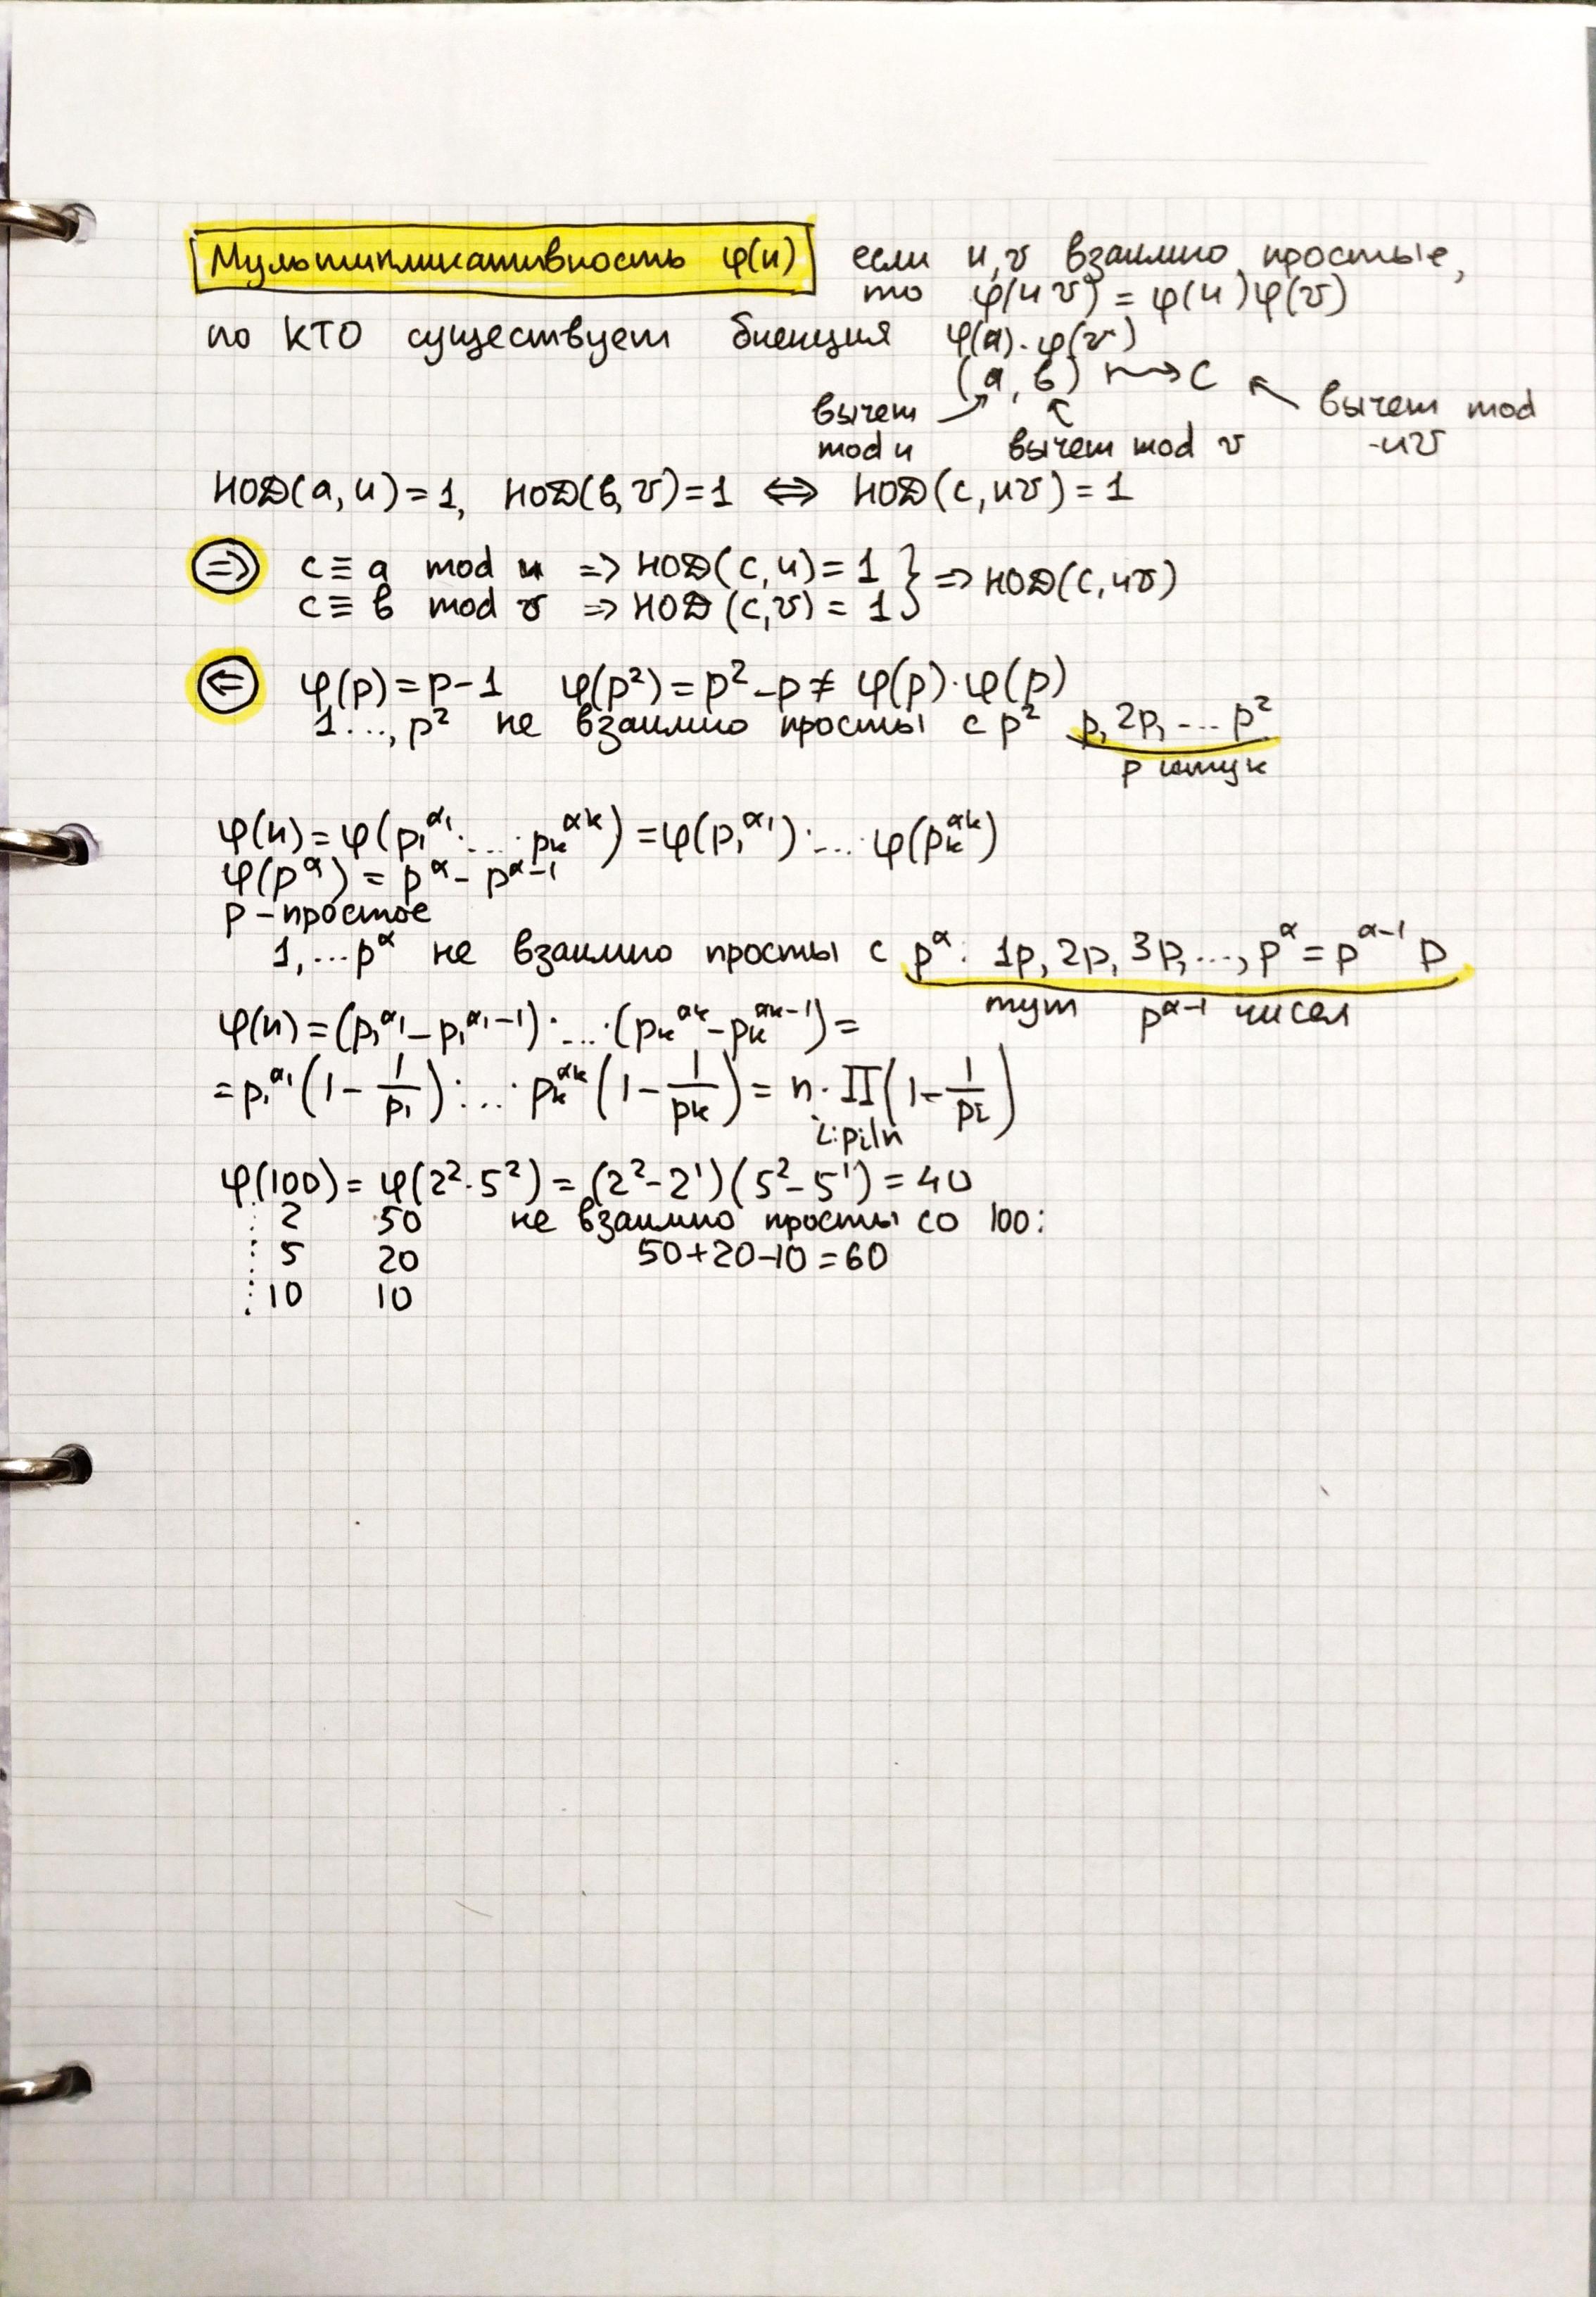 Мультипликативность φ(u) если u, v взаимно простые,
то φ(u v) = φ(u)φ(v)
по КТО существует биекция φ(a)·φ(v)
(a, b) ↦ c
вычет mod u
вычет mod v
вычет mod uv
НОД(a, u)=1, НОД(b, v)=1 ⇔ НОД(c, uv)=1
⇒ c ≡ a mod u => НОД(c, u)=1 } => НОД(c, uv)
c ≡ b mod v => НОД(c, v) = 1
⇐ φ(p)=p-1 φ(p²)=p²-p≠ φ(p)·φ(p)
1..., p² не взаимно просты с p² p, 2p, ... p²
p штук
φ(n)=φ(p₁^α₁·...·pₖ^αₖ)=φ(p₁^α₁)·...·φ(pₖ^αₖ)
φ(p^α) = p^α - p^(α-1)
p - простое
1,...p^α не взаимно просты с p^α: 1p, 2p, 3p,..., p^α = p^(α-1) p
тут p^(α-1) чисел
φ(n)=(p₁^α₁-p₁^(α₁-1))·...·(pₖ^αₖ-pₖ^(αₖ-1))=
=p₁^α₁(1-1/p₁)·...·pₖ^αₖ(1-1/pₖ)= n·∏(1-1/pᵢ)
i:pᵢ|n
φ(100)= φ(2²·5²)=(2²-2¹)(5²-5¹)=40
⋮ 2 50 не взаимно просты со 100:
⋮ 5 20 50+20-10=60
⋮ 10 10